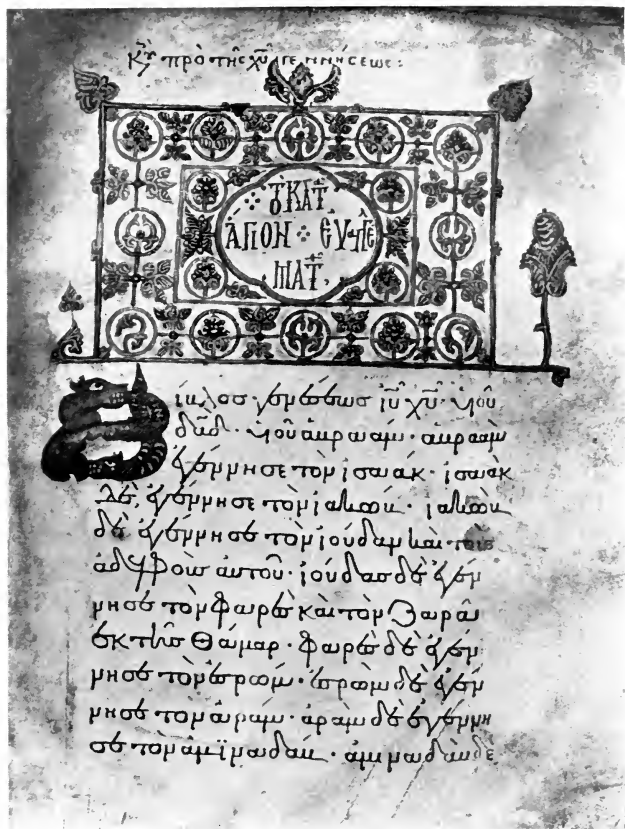 Κυ πρὸ τῆς χῦ γεννήσεως:
τὸ κατ
ἅγιον εὐαγγέ
ματ,
ίβλοσ γενέσεωσ ἰῦ χῦ· υἱοῦ
δᾱδ· υἱοῦ ἀβρααμ· ἀβρααμ
ἐγέννησε τὸν ἰσαακ· ἰσαακ
δὲ, ἐγέννησε τὸν ἰακωβ· ἰακωβ
δὲ ἐγέννησε τὸν ἰούδαν καὶ τοὺσ
ἀδελφοὺσ αὐτοῦ· ἰούδασ δὲ ἐγέν
νησε τὸν φαρὲσ καὶ τὸν ζαρὰ
ἐκ τῆσ θάμαρ· φαρὲσ δὲ ἐγέν
νησε τὸν ἐσρώμ· ἐσρὼμ δὲ ἐγέν
νησε τὸν ἀράμ· ἀρὰμ δὲ ἐγέννη
σε τὸν ἀμϊναδάβ· ἀμιναδὰβ δὲ